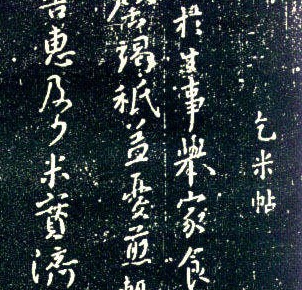 乞米帖
於生事舉家食
罄竭祇益憂煎
告惠及少米實濟